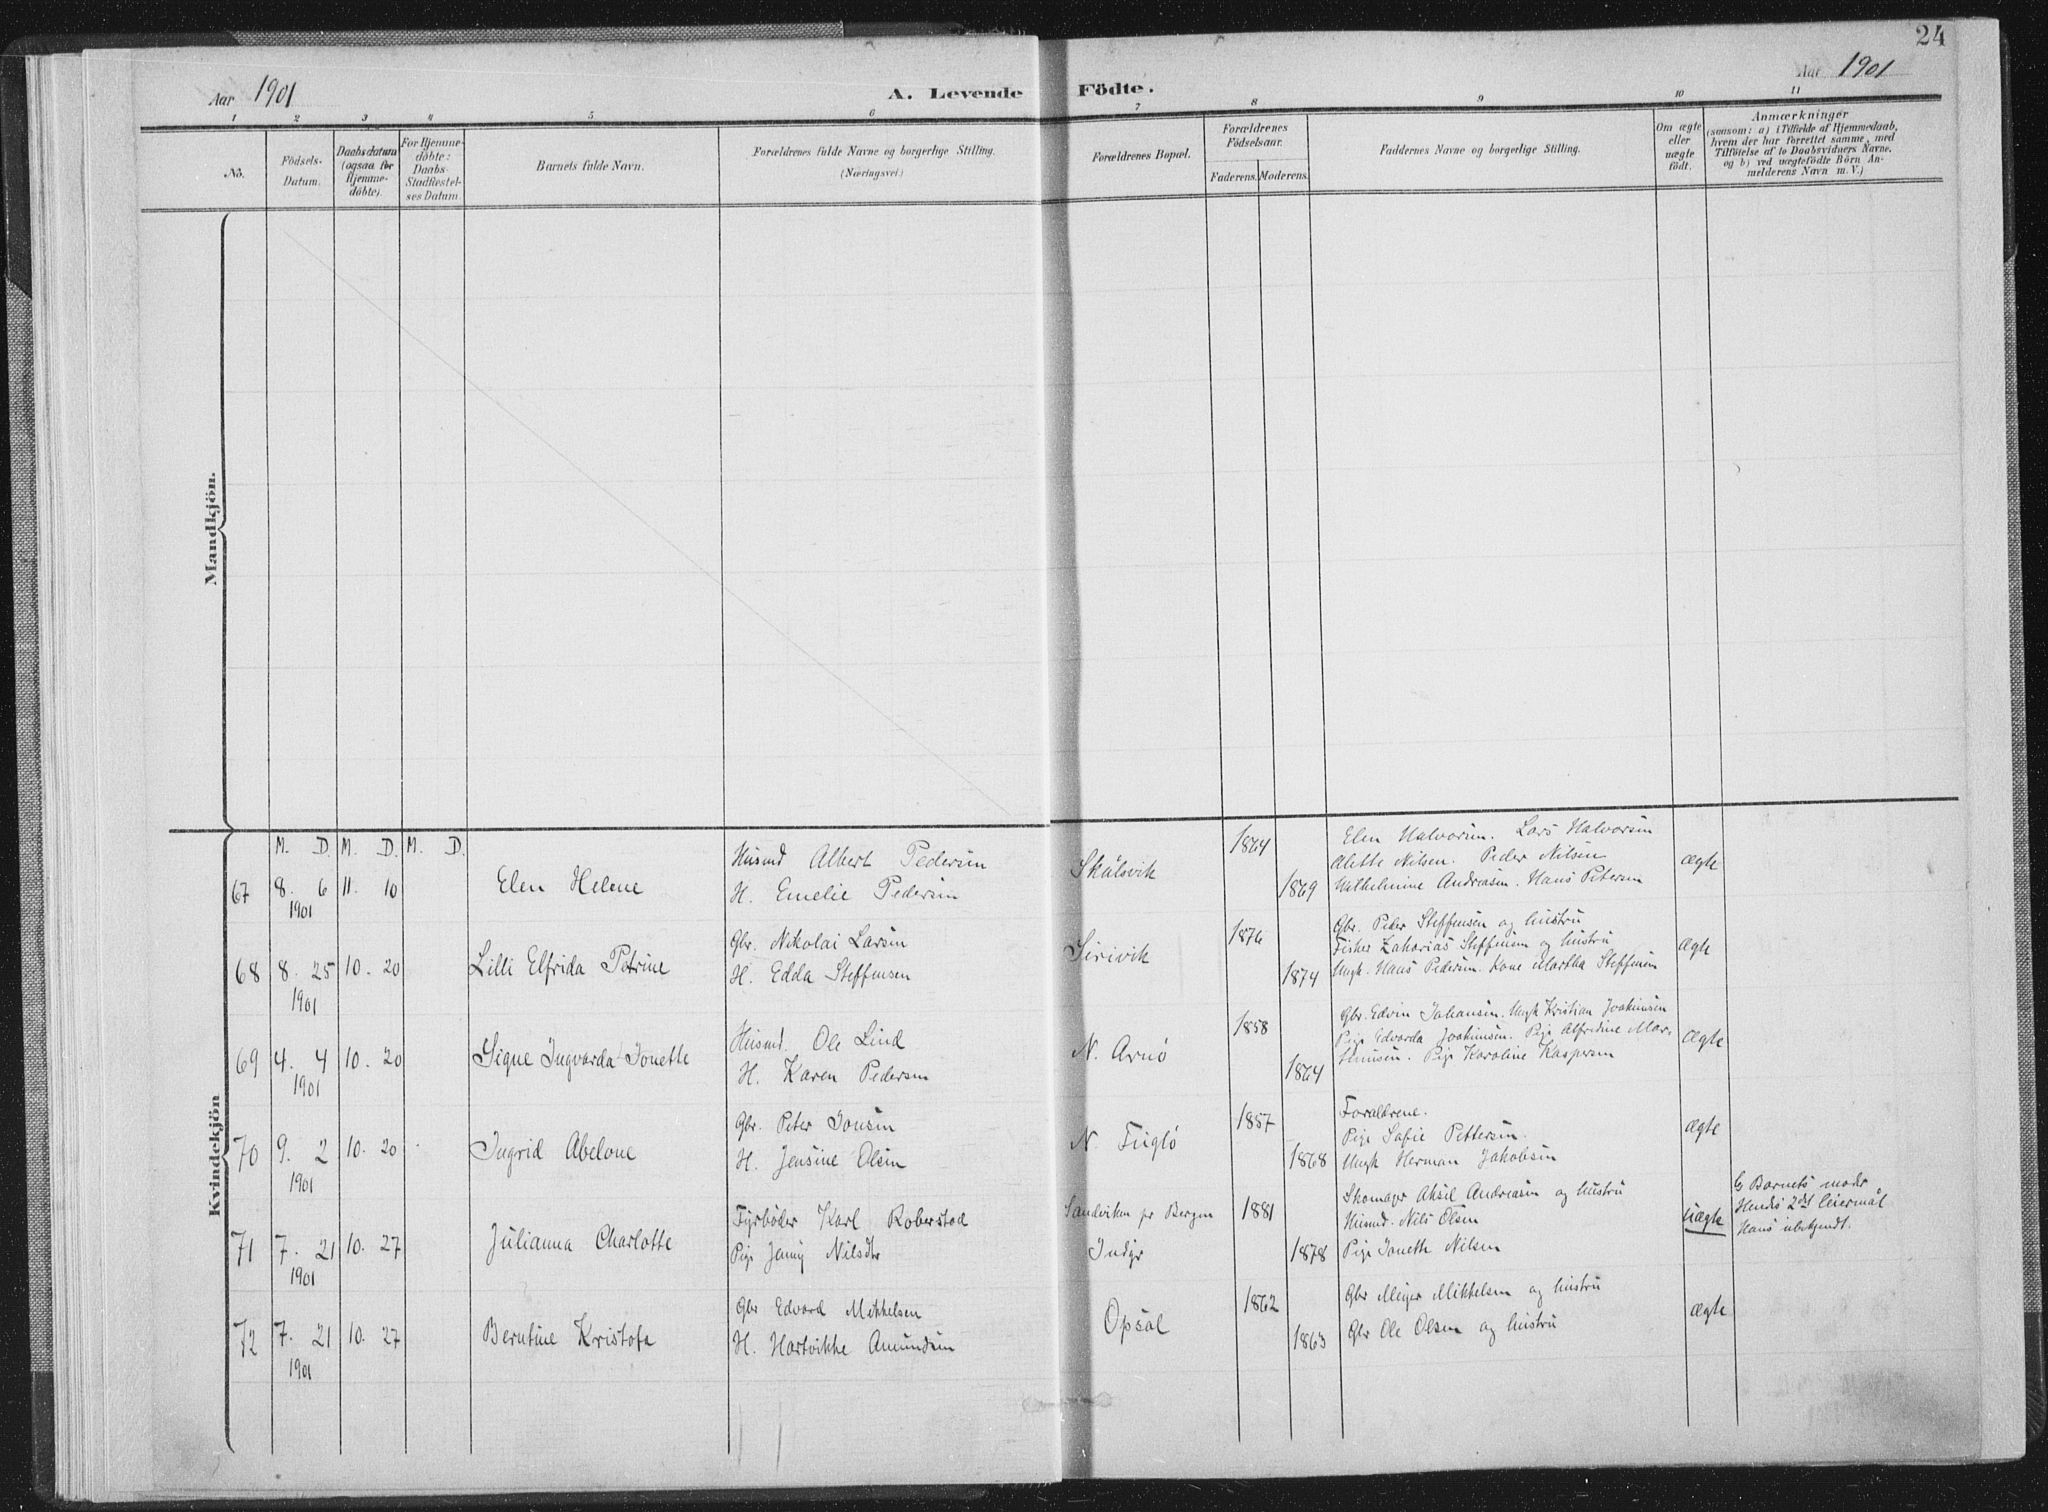 24
Aar 1901
A. Levende Födte.
Aar 1901
1 2 3 4 5 6 7 8 9 10 11
No.
Födsels-Datum.
Daabsdatum (ogsaa for Hjemme-döbte).
For Hjemme-döbte: Daabs-Stadfæstel-ses Datum.
Barnets fulde Navn.
Forældrenes fulde Navne og borgerlige Stilling.
(Næringsvei.)
Forældrenes Bopæl.
Forældrenes Födselsaar.
Faderens. Moderens.
Faddernes Navne og borgerlige Stilling.
Om ægte eller uægte födt.
Anmærkninger
(saasom: a) i Tilfælde af Hjemmedaab,
hvem der har forrettet samme, med
Tilföielse af to Daabsvidners Navne.
og b) ved uægtefödte Börn An-
melderens Navn m. V.)
Mandkjön.
Kvindekjön
M. D. M. D. M. D.
67 8. 6 1901 11. 10 Elen Helene
Husmd Albert Pedersen
H. Emelie Pedersen
Skålsvik 1864 1869
Elen Halvorsen. Lars Halvorsen
Alette Nilsen. Peder Nilsen
Wilhelmine Andreasen. Hans Petersen
ægte
68 8. 25 1901 10. 20 Lilli Elfrida Petrine
Gbr. Nikolai Larsen
H. Edda Steffensen
Sirivik 1876 1874
Gbr. Peder Steffensen og hustru
Fisker Zakarias Steffensen og hustru
Ungk. Hans Pedersen. Kone Martha Steffensen
ægte
69 4. 4 1901 10. 20 Signe Ingvarda Jonette
Husmd. Ole Lind
H. Karen Pedersen
N. Arnö 1858 1864
Gbr. Edvin Johansen. Ungk Kristian Joakimsen
Pige Edvarda Joakimsen. Pige Alfredine Mar-
thinsen. Pige Karoline Kaspersen
ægte
70 9. 2 1901 10. 20 Ingrid Abelone
Gbr. Peter Jonsen
H. Jensine Olsen
N. Fuglö 1857 1868
Forældrene.
Pige Sofie Pettersen.
Ungk Herman Jakobsen
ægte
71 7. 21 1901 10. 27 Julianna Charlotte
Fyrböder Karl Roberstad
Pige Jenny Nilsdtr
Sandviken pr Bergen
Indyr
1881 1878
Skomager Aksel Andreasen og hustru
Husmd. Nils Olsen
Pige Joneth Nilsen
uægte
Barnets moder
Hendes 2det leiermål
Hans ubekjendt.
72 7. 21 1901 10. 27 Berntine Kristofa
Gbr Edvard Mikkelsen
H. Hartvikke Amundsen
Opsal 1862 1863
Gbr Meyer Mikkelsen og hustru
Gbr Ole Olsen og hustru
ægte